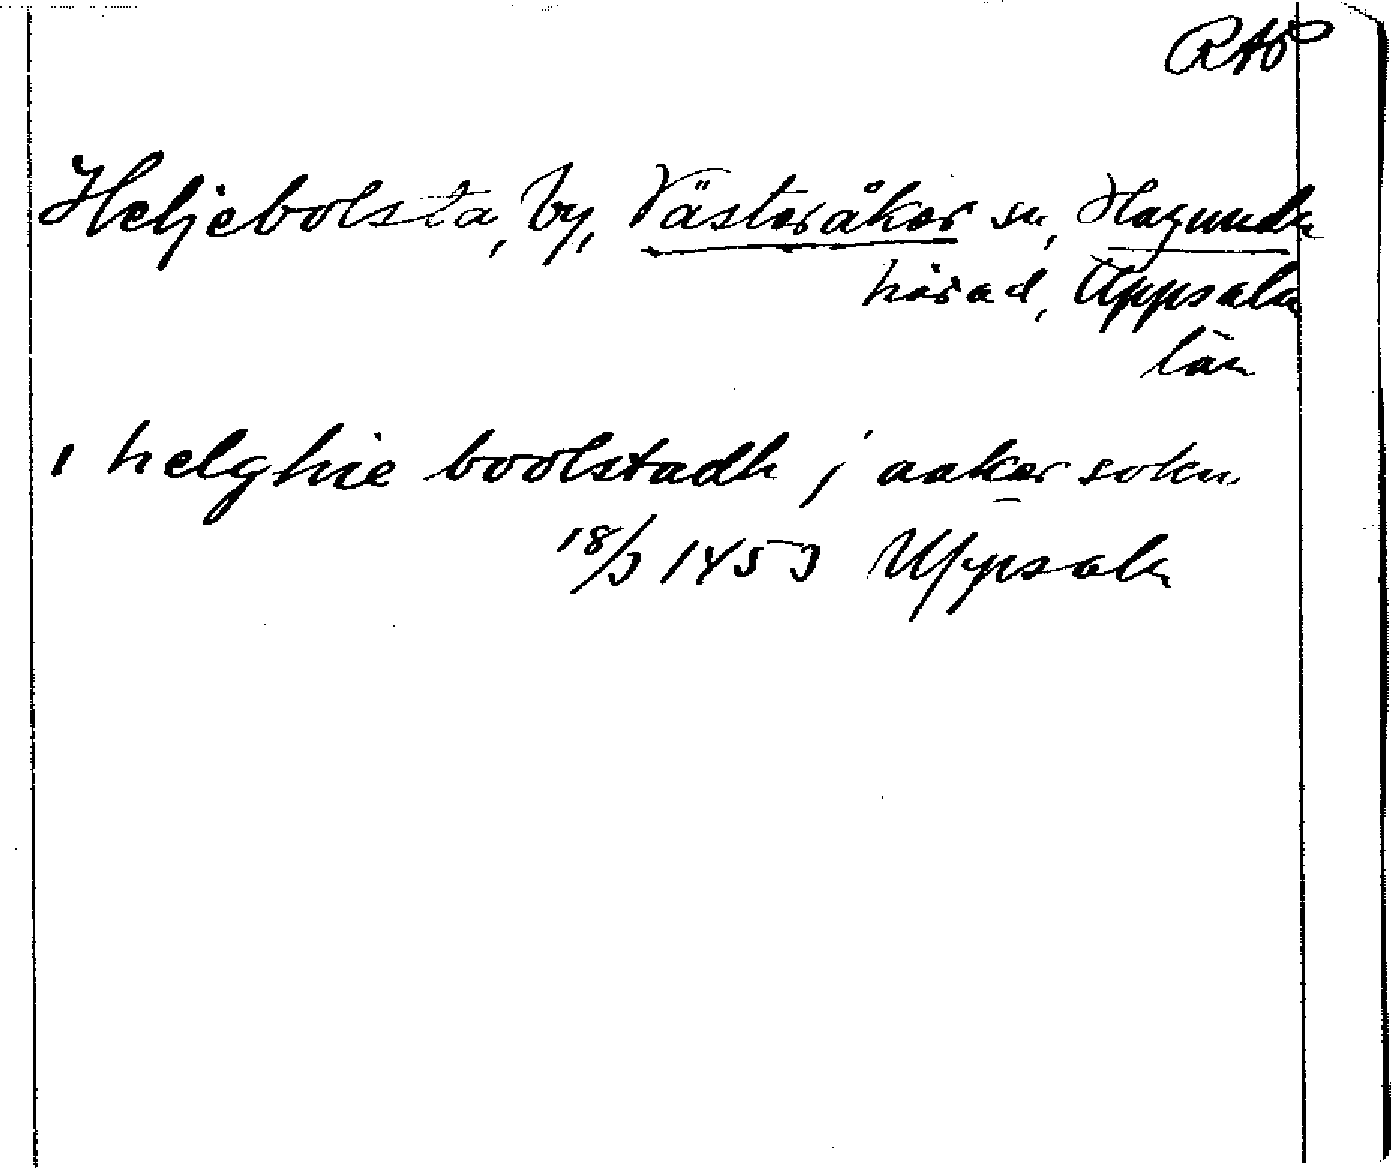 RAP
Heljebolsta, by, Västeråker sn, Hagunda
härad, Uppsala
län
i helghie boolstadh j aaker sokn
18/3 1453 Uppsala